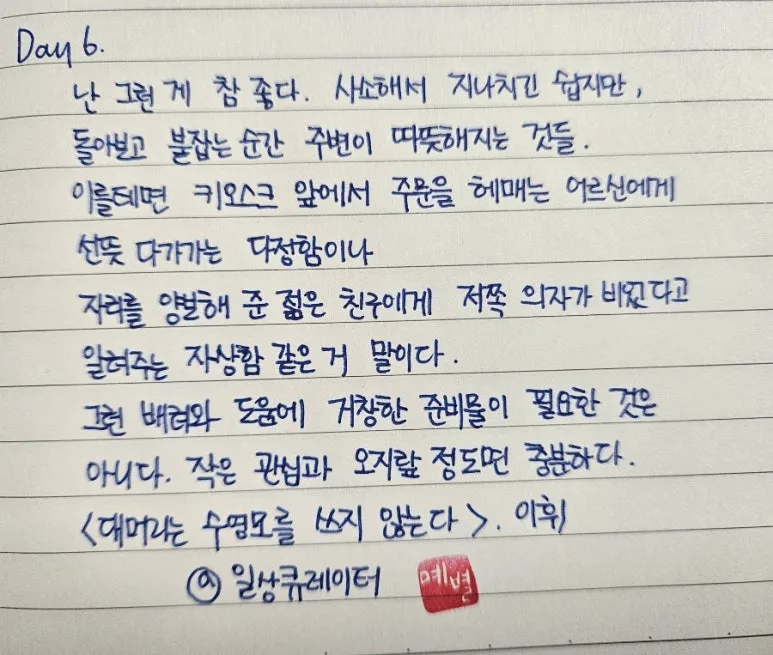 Day 6.
난 그런 게 참 좋다. 사소해서 지나치긴 쉽지만,
돌아보고 붙잡는 순간 주변이 따뜻해지는 것들.
이를테면 키오스크 앞에서 주문을 헤매는 어르신에게
선뜻 다가가는 다정함이나
자리를 양보해 준 젊은 친구에게 저쪽 의자가 비었다고
알려주는 자상함 같은 거 말이다.
그런 배려와 도움에 거창한 준비물이 필요한 것은
아니다. 작은 관심과 오지랖 정도면 충분하다.
<대머리는 수영모를 쓰지 않는다>. 이휘
@ 일상큐레이터 예별